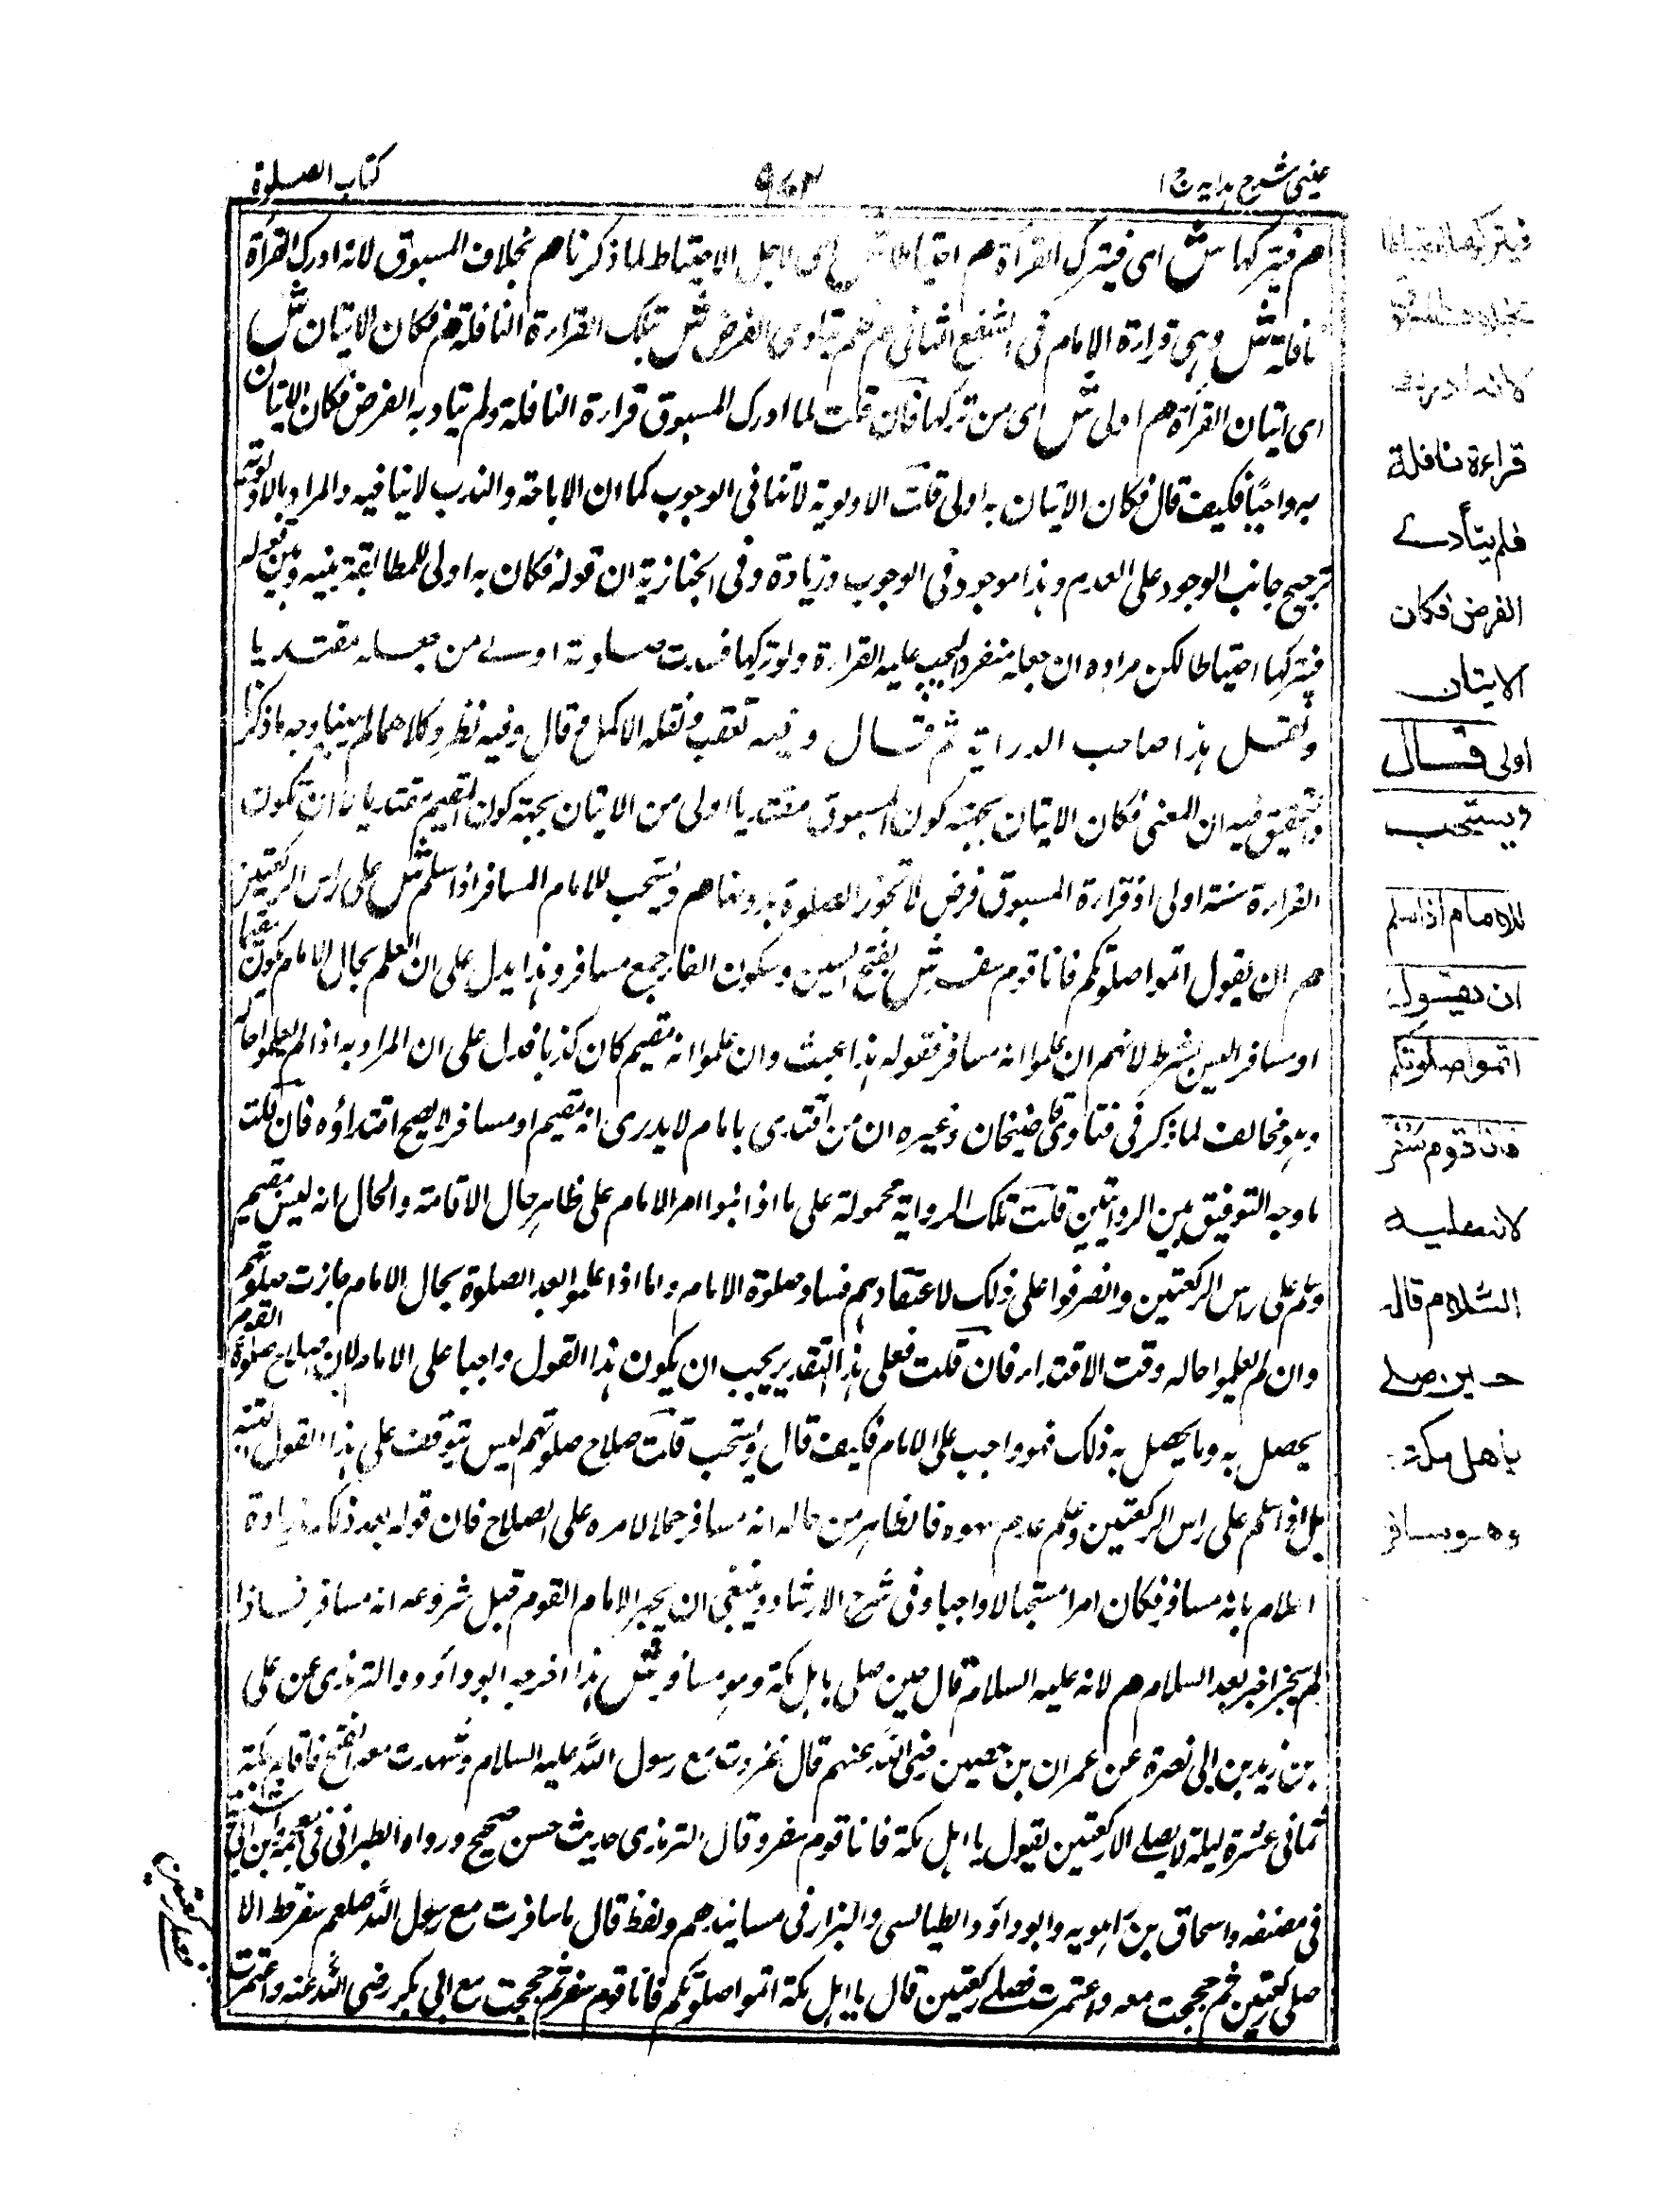 عینی شرح ہدایہ ج ۱
۹۷۳
کتاب الصلوة
م فیترکہا ش ای فیترک القرأة م احتیاطا ش ای لاجل الاحتیاط لما ذکرنا م بخلاف المسبوق لانہ ادرک القرأة
نافلة ش وہی قرارة الامام فی الشفع الثانی م فلم یتادی الفرض ش بتلک القرارة النافلة م فکان الاتیان ش
ای اتیان القرأة م اولی ش ای من ترکہا فان قلت لما ادرک المسبوق قرارة النافلة ولم یتاد بہ الفرض فکان الاتیان
بہ واجبًا فکیف قال فکان الاتیان بہ اولی قلت الاولویة لاتنافی الوجوب کما ان الاباحة والندب لاینافیہ والمراد بالاولویة
ترجیح جانب الوجود علی العدم وہذا موجود فی الوجوب وزیادة وفی الخبازیة ان قولہ فکان بہ اولی للمطابقة بینہ وبین قولہ
فیترکہا احتیاطا لکن مرادہ ان جعلہ منفردا لیجب علیہ القرارة ولو ترکہا فسدت صلوتہ اولے من جعلہ مقتدیا
ونقل ہذا صاحب الدرایة ثم قال وفیہ تعقب ونقلہ الاکمل ثم قال وفیہ نظر وکلاھما لم یبینا وجہ ماذکرا
والتحقیق فیہ ان المعنی فکان الاتیان بجہة کون المسبوق مقتدیا اولی من الاتیان بجہة کون المقیم مقتدیا لان تکون
القرارة سنة اولی اذ قرارة المسبوق فرض لاتجوز الصلوة بدونہا م ویستحب للامام المسافر اذا سلم ش علی راس الرکعتین
م ان یقول اتموا صلوتکم فانا قوم سفر ش بفتح السین وسکون الفار جمع مسافر وہذا یدل علی ان العلم بحال الامام بکونہ مقیما
او مسافرا لیس بشرط لانہم ان علموا انہ مسافر فقولہ ہذا عبث وان علموا انہ مقیم کان کذبا فدل علی ان المراد بہ اذا لم یعلموا حالہ
وہو مخالف لما ذکر فی فتاوی قاضیخان وغیرہ ان من اقتدی بامام لایدری انہ مقیم او مسافر لایصح اقتداؤہ فان قلت
ماوجہ التوفیق بین الروایتین قلت تلک الروایة محمولة علی ما اذا بنوا امر الامام علی ظاہر حال الاقامة والحال انہ لیس بمقیم
وسلم علی راس الرکعتین وانصرفوا علی ذلک لاعتقادہم فساد صلوة الامام واما اذا علموا بعد الصلوة بحال الامام جازت صلوتہم
وان لم یعلموا حالہ وقت الاقتدار فان قلت فعلی ہذا التقدیر یجب ان یکون ہذا القول واجبا علی الامام لان صلاح صلوة القوم
یحصل بہ وما یحصل بہ ذلک فہو واجب علی الامام فکیف قال ویستحب قلت صلاح صلوتہم لیس یتوقف علی ہذا القول البتة
بل اذا سلم علی راس الرکعتین وعلم عدم سہوہ فالظاہر من حالہ انہ مسافر حملا لامرہ علی الصلاح فان قولہ بعد ذلک زیادة
اعلام بانہ مسافر فکان امرا مستحبا لاواجبا وفی شرح الارشاد وینبغی ان یخبر الامام القوم قبل شروعہ انہ مسافر فاذا
لم یخبر اخبر بعد السلام م لانہ علیہ السلام قال حین صلی باہل مکة وہو مسافر ش ہذا اخرجہ ابو داؤد والترمذی عن علی
بن زید بن ابی نضرة عن عمران بن حصین رضی اللہ عنہم قال غزوت مع رسول اللہ علیہ السلام وشہدت معہ الفتح فاقام بمکة
ثمانی عشرة لیلة لا یصلے الا رکعتین یقول یا اہل مکة فانا قوم سفر وقال الترمذی حدیث حسن صحیح ورواہ الطبرانی فی معجمہ وابن ابی شیبة
فی مصنفہ واسحاق بن راہویہ وابو داؤد الطیالسی والبزار فی مسانیدھم ولفظ قال ما سافرت مع رسول اللہ صلعم سفر قط الا
صلی رکعتین ثم حججت معہ واعتمرت فصلے رکعتین قال یا اہل مکة اتموا صلوتکم فانا قوم سفر ثم حججت مع ابی بکر رضی اللہ عنہ واعتمرت
فصلے رکعتین
فیترکھا احتیاطا
بخلاف المسبوق
لانہ ادرک
قراءة نافلة
فلم یتأدے
الفرض فکان
الاتیان
اولی قال
ویستحب
للامام اذا سلم
ان یقول
اتموا صلوتکم
فانا قوم سفر
لانہ علیہ
السلام قال
حین صلے
باھل مکة
وھو مسافر